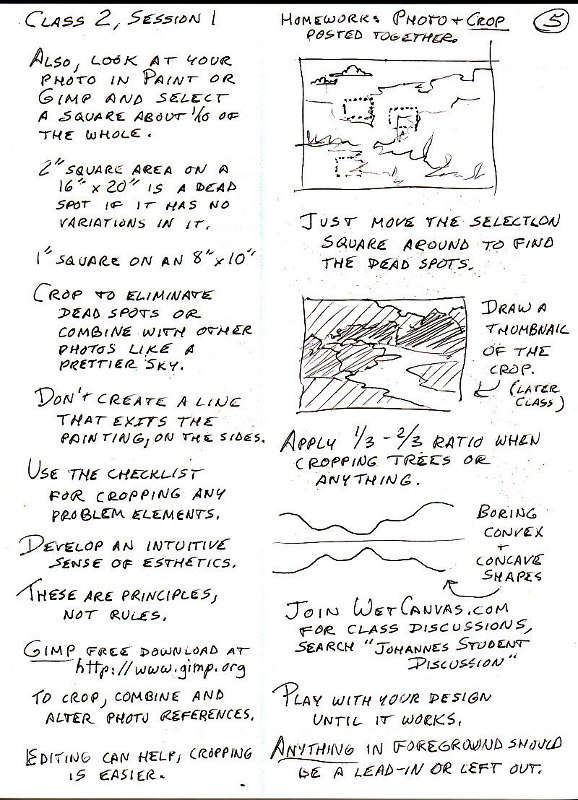 Class 2, Session 1
Also, look at your
photo in Paint or
Gimp and select
a square about 1/10 of
the whole.
2" square area on a
16" x 20" is a dead
spot if it has no
variations in it.
1" square on an 8" x 10"
Crop to eliminate
dead spots or
combine with other
photos like a
prettier sky.
Don't create a line
that exits the
painting, on the sides.
Use the checklist
for cropping any
problem elements.
Develop an intuitive
sense of esthetics.
These are principles,
not rules.
Gimp free download at
http://www.gimp.org
to crop, combine and
alter photo references.
Editing can help, cropping
is easier.
Homework: Photo + Crop
posted together.
5
Just move the selection
square around to find
the dead spots.
Draw a
thumbnail
of the
crop.
(later
class)
Apply 1/3 - 2/3 ratio when
cropping trees or
anything.
Boring
convex
+
concave
shapes
Join WetCanvas.com
for class discussions,
search "Johannes Student
Discussion"
Play with your design
until it works.
Anything in foreground should
be a lead-in or left out.